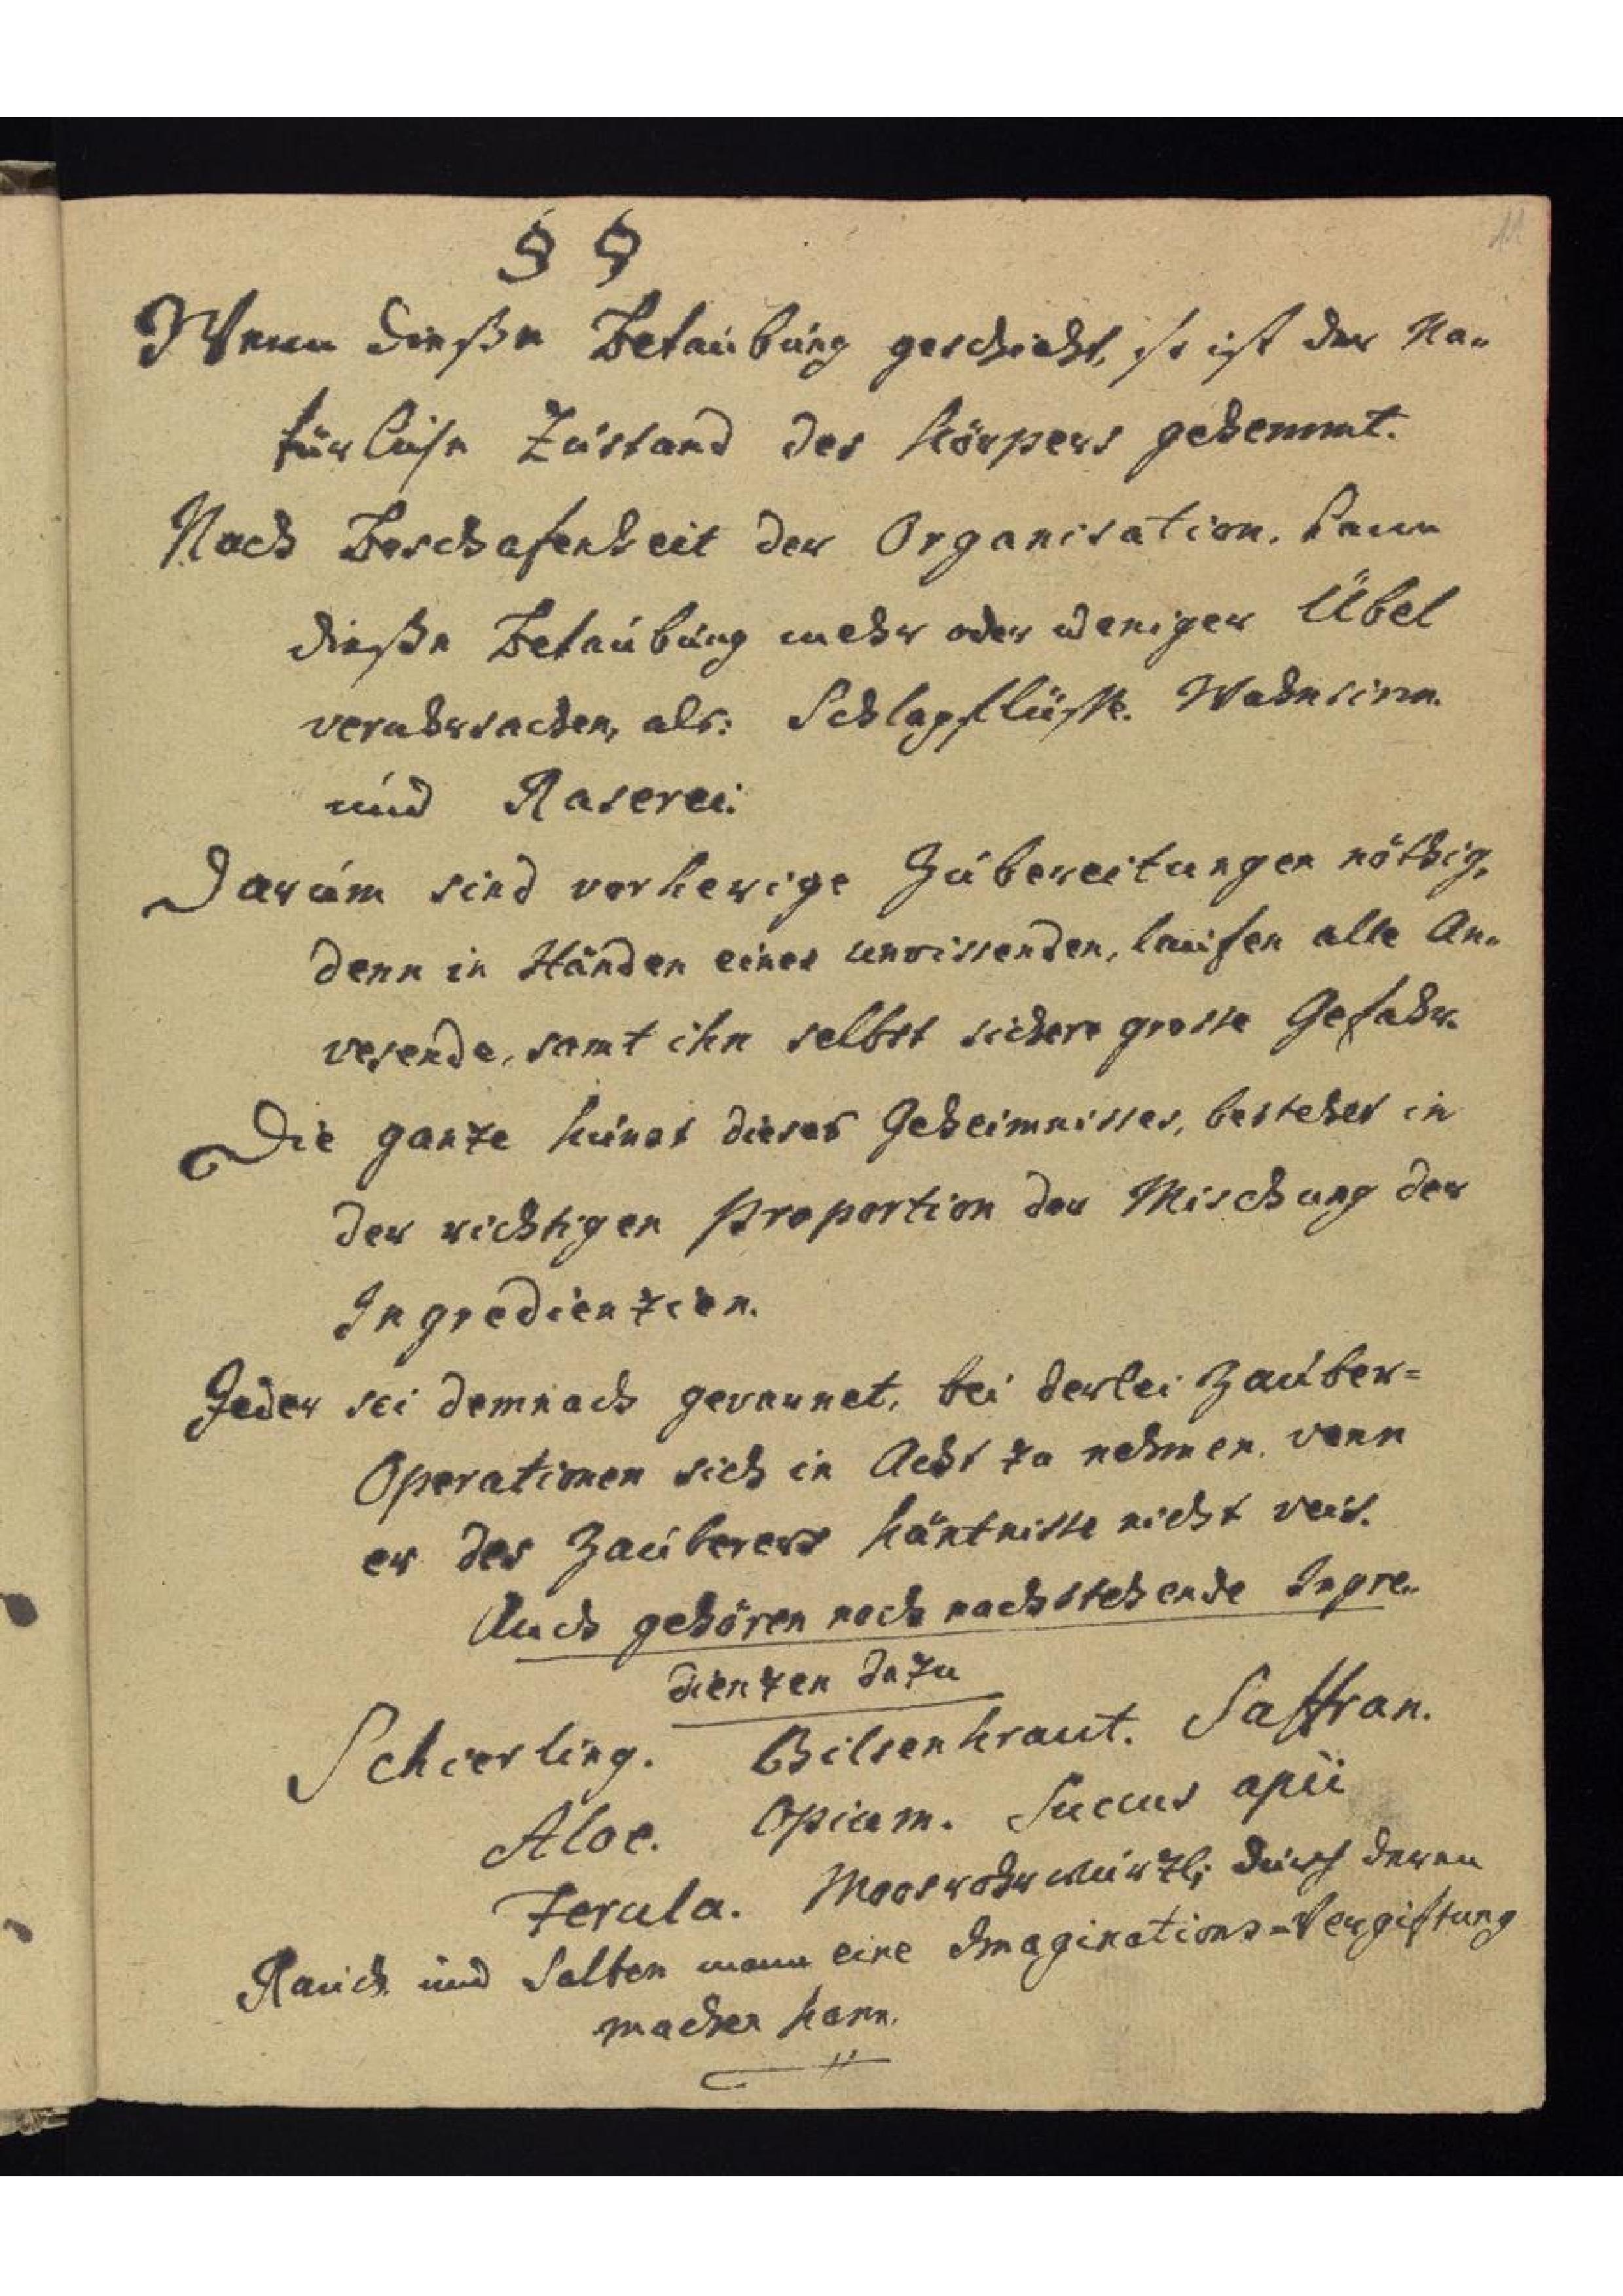 11
§ §
Wenn dieße Betaübúng geschieht, so ist der Na-
türliche Zústand des Körpers gehemmt.
Nach Beschafenheit der Organisation, kann
dieße Betaúbúng mehr oder weniger Übel
veruhrsachen, als: Schlagflüsse. Wahnsinn.
und Raserei:
Darúm sind vorherige Zúbereitungen nöthig,
denn in Händen eines unvissenden, laúfen alle An-
vesende, samt ihn selbst sichere grosse Gefahr.
Die ganze Kúnst dieses Geheimnisses, bestehet in
der richtigen Proportion der Mischung der
Ingredienzien.
Jeder sei demnach gevarnet, bei derlei Zaúber=
Operationen sich in Acht zu nehmen. venn
er des Zaúberers Käntnisse nicht veis.
Auch gehören noch nachstehende Ingre-
dienzen dazu
Schierling. Bilsenkraut. Saffran.
Aloe. Opium. Succus apii
Ferula. Moosrohrwúrzl; dúrch deren
Raúch únd Salben mann eine Imaginations=Vergiftung
machen kann.